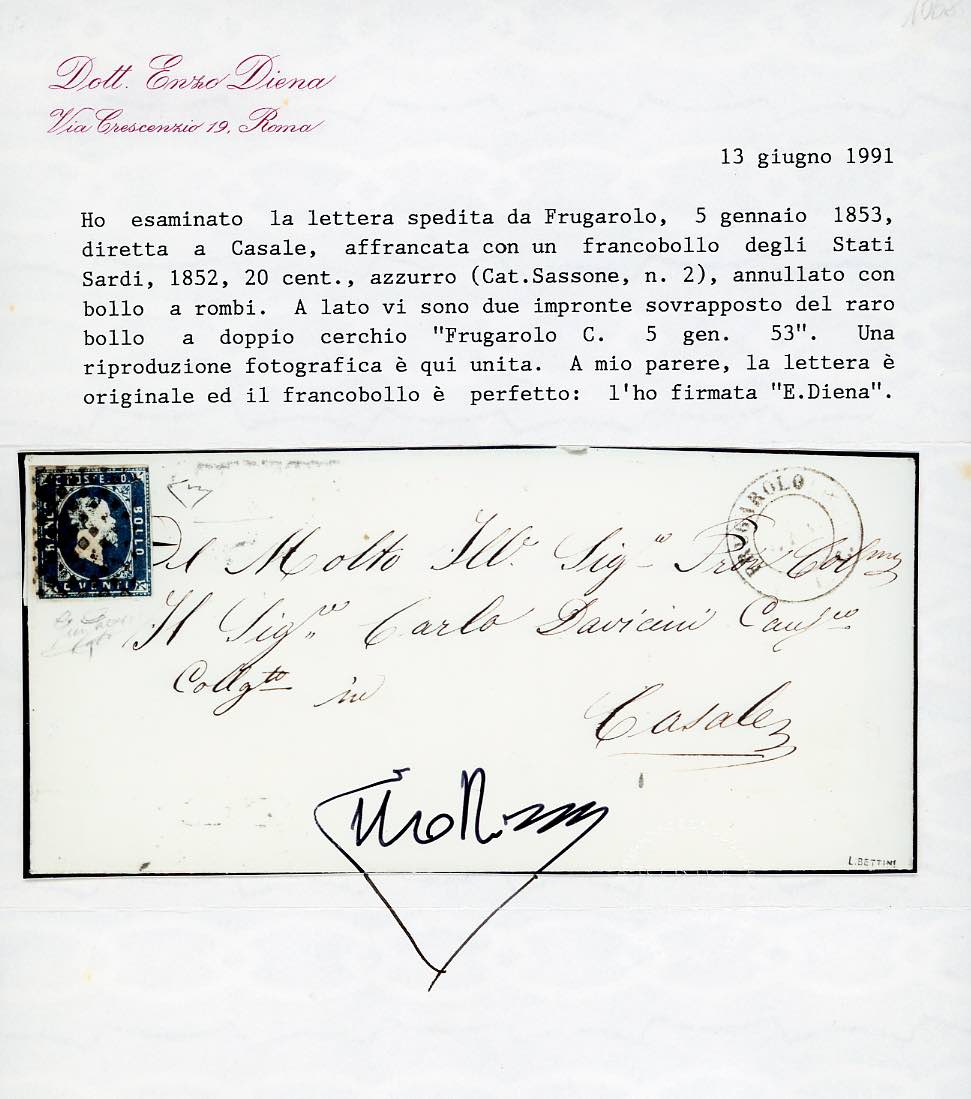 Dott. Enzo Diena
Via Crescenzio 19, Roma
13 giugno 1991
Ho esaminato la lettera spedita da Frugarolo, 5 gennaio 1853,
diretta a Casale, affrancata con un francobollo degli Stati
Sardi, 1852, 20 cent., azzurro (Cat.Sassone, n. 2), annullato con
bollo a rombi. A lato vi sono due impronte sovrapposto del raro
bollo a doppio cerchio "Frugarolo C. 5 gen. 53". Una
riproduzione fotografica è qui unita. A mio parere, la lettera è
originale ed il francobollo è perfetto: l'ho firmata "E.Diena".
C. 20
BOLLO
FRUGAROLO
Molto Ill. Sig.
Il Sig. Carlo Davicini
Collg.to in
Casale
L.BETTINI